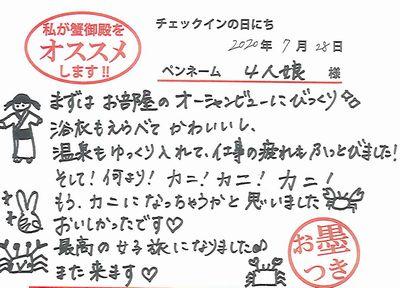 私が蟹御殿を
オススメ
します!!
チェックインの日にち
2020年 7月 28日
ペンネーム 4人娘 様
まずは お部屋の オーシャンビューにびっくり
浴衣もえらべて かわいいし、
温泉もゆっくり入れて、仕事の疲れもふっとびました!
そして! 何より! カニ! カニ! カニ!
もう、カニになっちゃうかと 思いました
おいしかったです♡
最高の女子旅になりました♪
また来ます♡
お墨
つき